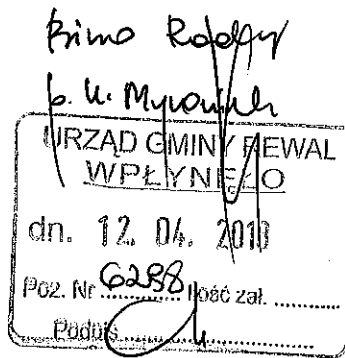 Biuro Rady
p. K.
URZĄD GMINY REWAL
WPŁYNĘŁO
dn. 12. 04. 2010
Poz. Nr 6288 Ilość zał. ............
Podpis ............